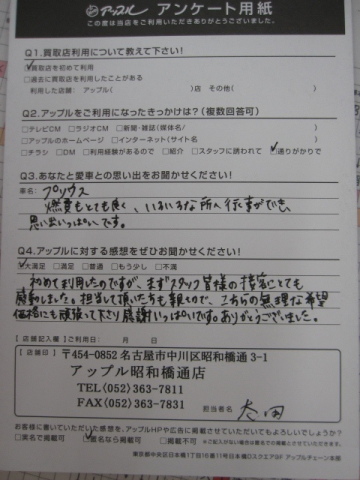 アップル アンケート用紙
この度は当店をご利用いただきありがとうございました。
Q1.買取店利用について教えて下さい!
☑買取店を初めて利用
□過去に買取店を利用したことがある
利用した店舗: アップル( )店 その他( )
Q2.アップルをご利用になったきっかけは?(複数回答可)
□テレビCM □ラジオCM □新聞・雑誌(媒体名/ )
□アップルのホームページ □インターネット(サイト名 )
□チラシ □DM □利用経験があるので □紹介 □スタッフに誘われて ☑通りがかりで
Q3.あなたと愛車との思い出をお聞かせください!
車名: プリウス
燃費もとても良く、いろいろな所へ行く事ができ、
思い出いっぱいです。
Q4.アップルに対する感想をぜひお聞かせください!
☑大満足 □満足 □普通 □もう少し □不満
初めて利用したのですが、まずスタッフ皆様の接客にとても
感動しました。担当して頂いた方も親切で、こちらの無理な希望
価格にも頑張って下さり感謝いっぱいです。ありがとうございました。
【店舗記入欄】ご利用日: 月 日
【店舗印】
〒454-0852 名古屋市中川区昭和橋通3-1
アップル昭和橋通店
TEL(052)363-7811
FAX(052)363-7831
担当者名 太田
お客様に書いていただいた感想を、アップルHPや広告に掲載させていただいてもよろしいでしょうか?
□実名で掲載可 ☑匿名なら掲載可 □掲載不可 ※ご記入がない場合は匿名での掲載とさせていただきます。
東京都中央区日本橋1丁目16番11号日本橋DスクエアGF アップルチェーン本部